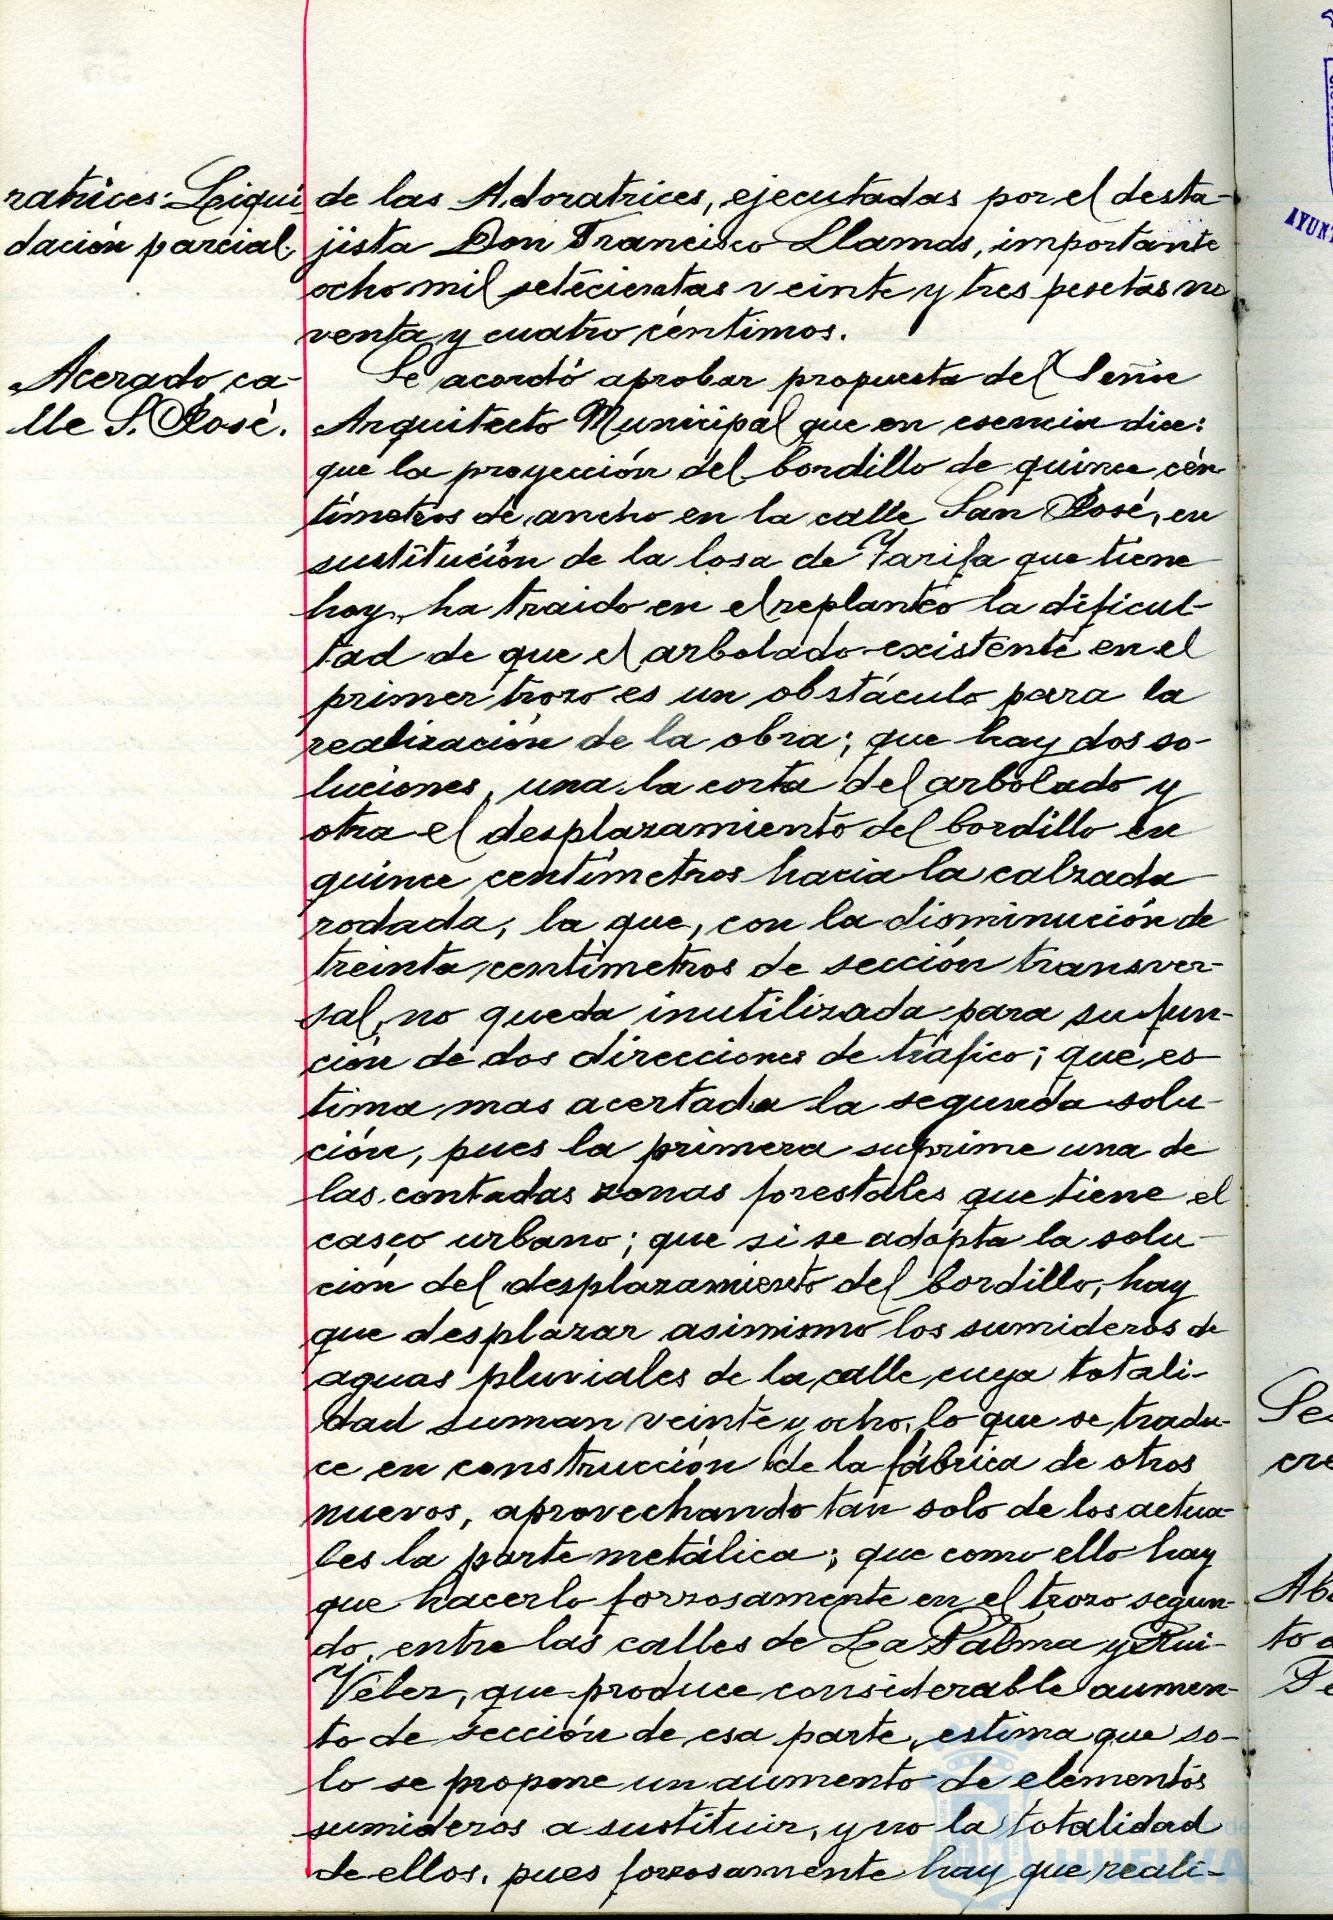 ratrices: Liqui-
dación parcial.
de las Adoratrices, ejecutadas por el desta-
jista Don Francisco Llamas, importante
ocho mil setecientas veinte y tres pesetas no
venta y cuatro céntimos.
Acerado ca-
lle S. José.
Se acordó aprobar propuesta del Señor
Arquitecto Municipal que en esencia dice:
que la proyección del bordillo de quince cén-
timetros de ancho en la calle San José, en
sustitución de la losa de Tarifa que tiene
hoy, ha traido en el replanteo la dificul-
tad de que el arbolado existente en el
primer trozo es un obstáculo para la
realización de la obra; que hay dos so-
luciones, una la corta del arbolado y
otra el desplazamiento del bordillo en
quince centímetros hacia la calzada
rodada, la que, con la disminución de
treinta centimetros de sección transver-
sal, no queda inutilizada para su fun-
ción de dos direcciones de tráfico; que es-
tima mas acertada la segunda solu-
ción, pues la primera suprime una de
las contadas zonas forestales que tiene el
casco urbano; que si se adopta la solu-
ción del desplazamiento del bordillo, hay
que desplazar asimismo los sumideros de
aguas pluviales de la calle cuya totali-
dad suman veinte y ocho, lo que se tradu-
ce en construcción de la fábrica de otros
nuevos, aprovechando tan solo de los actua-
les la parte metálica; que como ello hay
que hacerlo forzosamente en el trozo segun-
do, entre las calles de La Palma y Rui-
Vélez, que produce considerable aumen-
to de sección de esa parte, estima que so-
lo se propone un aumento de elementos
sumideros a sustituir, y no la totalidad
de ellos, pues forzosamente hay que reali-
HUELVA
AYUNT
Se
cre
Ab
to